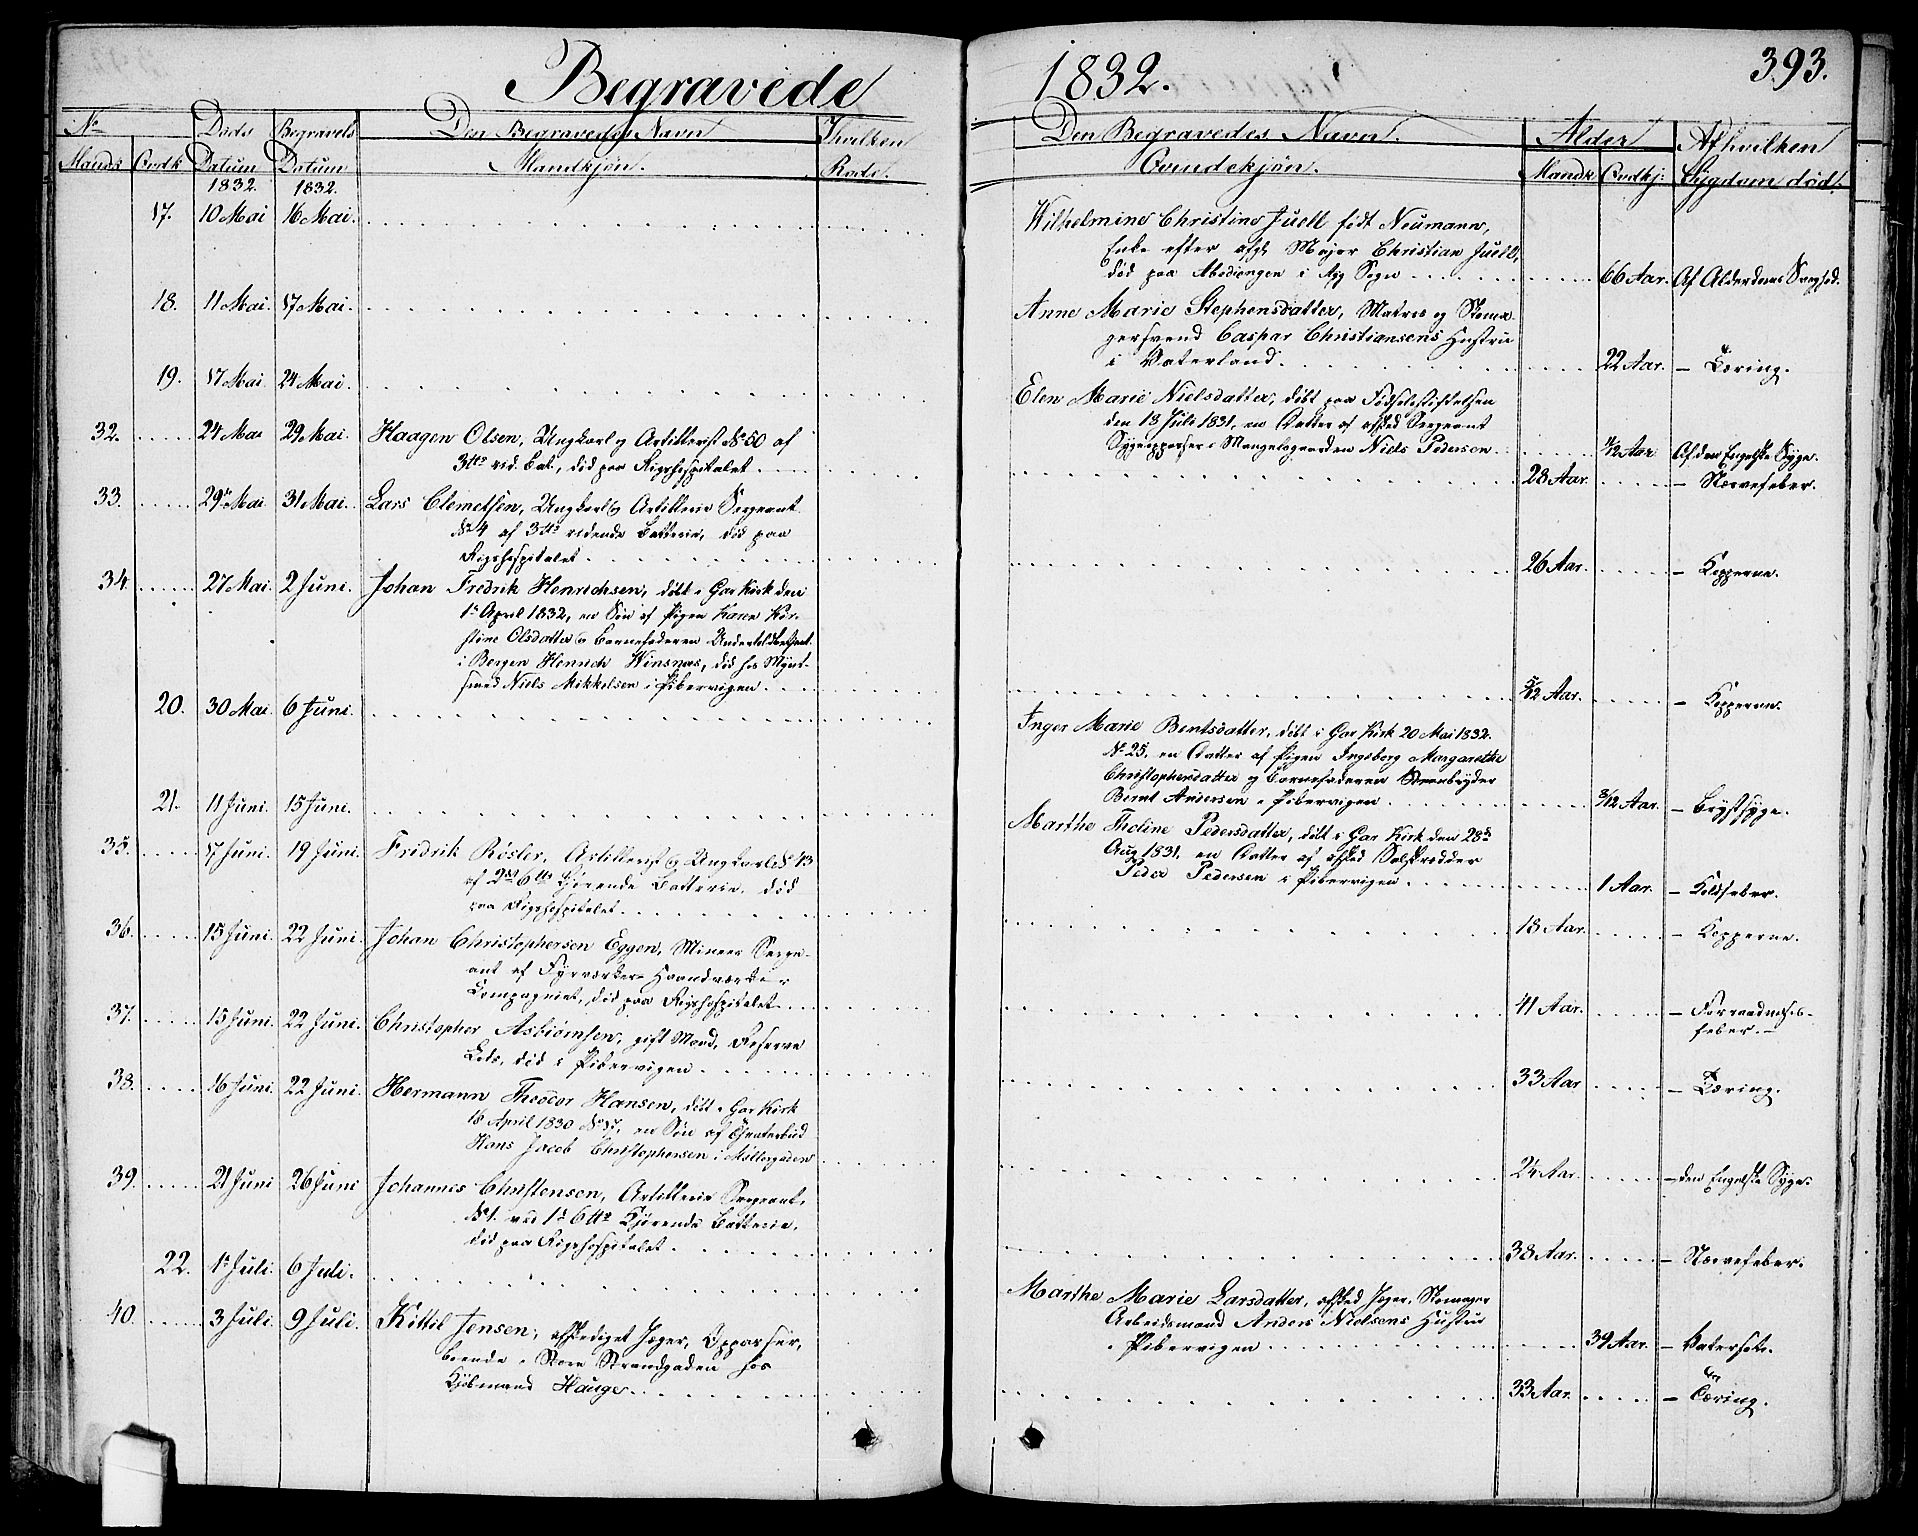 Begravede 1832. 393.
No Døds Begravels Den Begravedes Navn I hvilken Den Begravedes Navn. Alder Af hvilken
Mandk Qvdk Datum Datum Mandkjøn. Rode. Qvindekjøn. Mandk Qvdkj: Sygdom død.
1832. 1832.
17. 10 Mai 16 Mai. Wilhelmine Christine Juell født Neumann,
Enke efter afg. Major Christian Juell,
død paa Abediengen i Agg Sogn 66 Aar. Af Alderdoms Svaghed.
18. 11 Mai. 17 Mai. Anne Marie Stephensdatter, Matros og Skoma-
gersvend Caspar Christiansens Hustru
i Vaterland. 22 Aar. – Tæring.
19. 17 Mai. 24 Mai. Elen Marie Nielsdatter, døbt paa Fødselsstiftelsen
den 13 Juli 1831, en Datter af afsked Sergeant
Sygeopasser i Mangelsgaarden Niels Pedersen Aar Af den Engelske Syge.
32. 24 Mai 29 Mai. Haagen Olsen, Ungkarl og Artillerist No 50 af
3die rid. Bat., død paa Rigshospitalet 28 Aar. – Nervefeber.
33. 29 Mai 31 Mai. Lars Clemetsen, Ungkarl og Artillerie Sergeant
No 4 af 3die ridende Batterie, død paa
Rigshospitalet 26 Aar. – Kopperne.
34. 27 Mai. 2 Juni. Johan Fredrik Henrichsen, døbt i Gar Kirk den
1ste April 1832, en Søn af Pigen Karen Kir-
stine Olsdatter og Barnefaderen
i Bergen Henrich Winsnæs, død hos Mynt-
smed Niels Mikkelsen i Pibervigen 2/12 Aar. – Kopperne.
20. 30 Mai. 6 Juni. Inger Marie Berntsdatter, døbt i Gar Kirk 20 Mai 1832.
No 25. en Datter af Pigen Ingeborg Margarethe
Christophersdatter og Barnefaderen Steenbryder
Bernt Andersen i Pibervigen 3/12 Aar. – Brystsyge.
21. 11 Juni. 15 Juni. Marthe Tholine Pedersdatter, døbt i Gar Kirk den 28de
Aug 1831, en Datter af afsked
Peder Pedersen i Pibervigen 1 Aar. – Koldfeber.
35. 17 Juni. 19 Juni. Fridrik Røsler, Artillerist og Ungkarl No 43
af 2det 6tt kjørende Batterie, død
paa Rigshospitalet 18 Aar. – Kopperne.
36. 15 Juni. 22 Juni. Johan Christophersen Eggen, Mineer Serge-
ant af Fyrværker- Haandværker-
Compagniet, død paa Rigshospitalet 41 Aar. – Forraadnelses-
feber.
37. 15 Juni. 22 Juni. Christopher Asbiørnsen, gift Mand, Reserve
Lods, død i Pibervigen 33 Aar – Tæring.
38. 16 Juni. 22 Juni. Hermann Theodor Hansen, døbt i Gar Kirk
18 April 1830 No 17, en Søn af
Hans Jacob Christophersen i Møllergaden 2 Aar. – den Engelske Syge.
39. 21 Juni 26 Juni Johannes Christensen, Artillerie Sergeant,
No 1. ved 1ste 6tt kjørende Batterie,
død paa Rigshospitalet 38 Aar. – Nervefeber.
22. 1ste Juli. 6 Juli. Marthe Marie Larsdatter, afsked Jæger, Skomager
Arbeidsmand Anders Nielsens Hustru
i Pibervigen 39 Aar. – Vatersot.
40. 3 Juli. 9 Juli. Kittil Jensen, afskediget Jæger, Oppasser,
boende i Store Strandgaden hos
Kjøbmand Hauge 33 Aar. – Tæring.